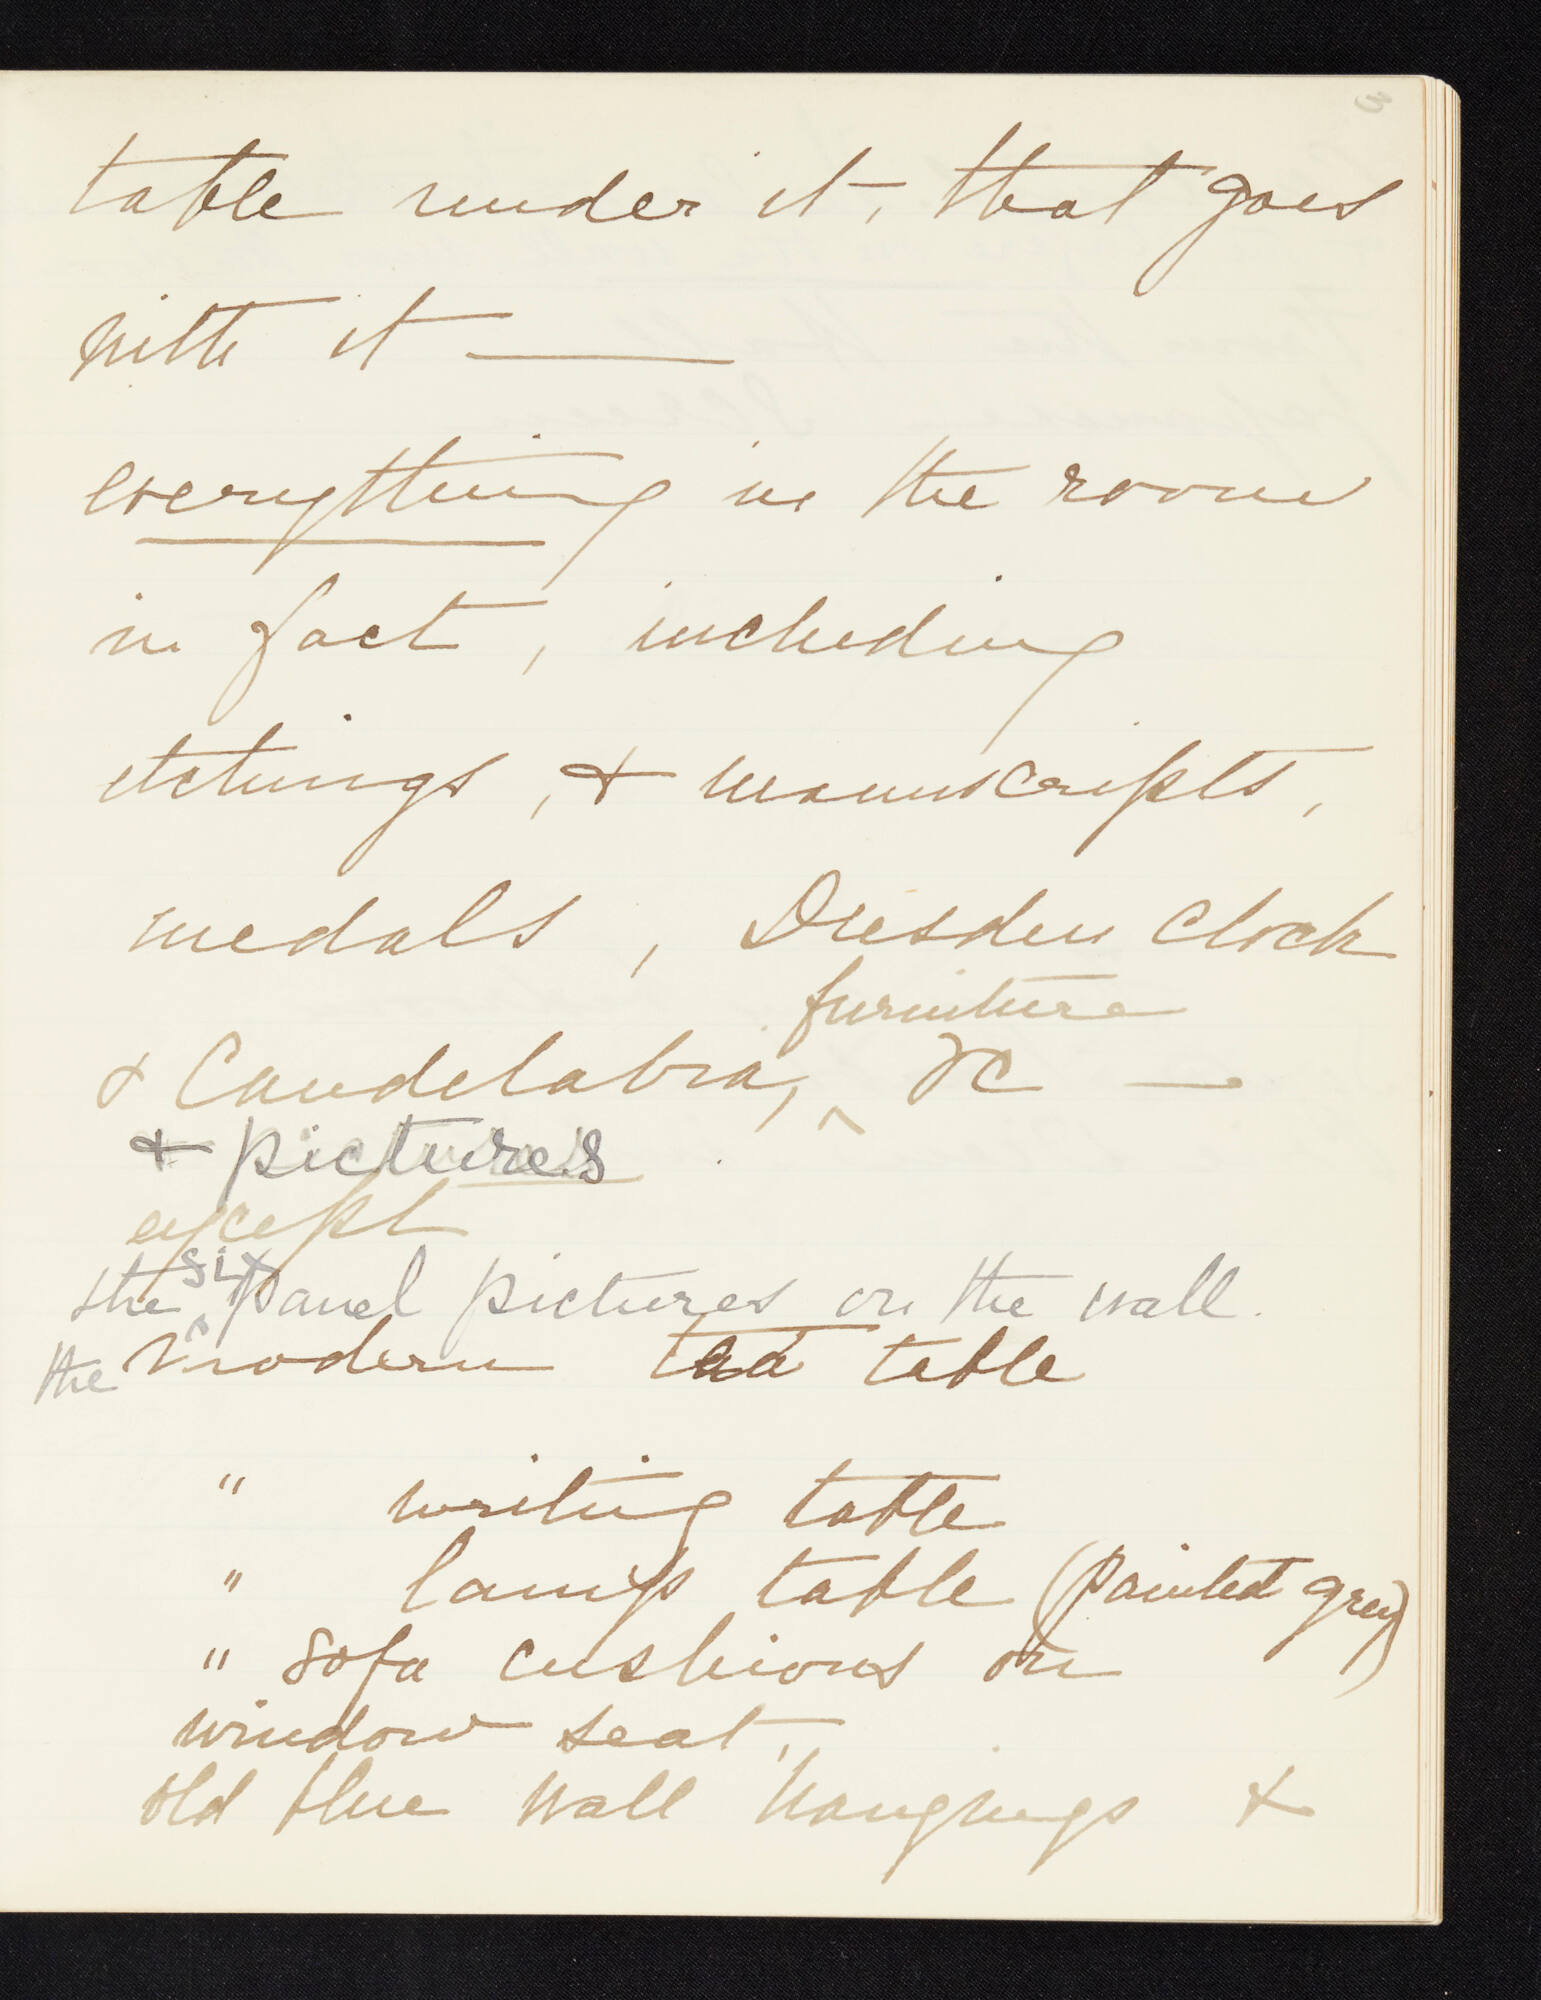 3
table under it, that goes
with it ———
everything in the room
in fact, including
etchings, & manuscripts,
medals, Dresden Clock
furniture
& Candelabra, ^ &c —
& pictures
except
six
the ^ panel pictures on the wall.
the modern tea table
" writing table
" lamp table (painted grey)
" sofa cushions on
window seat,
old blue wall hangings &